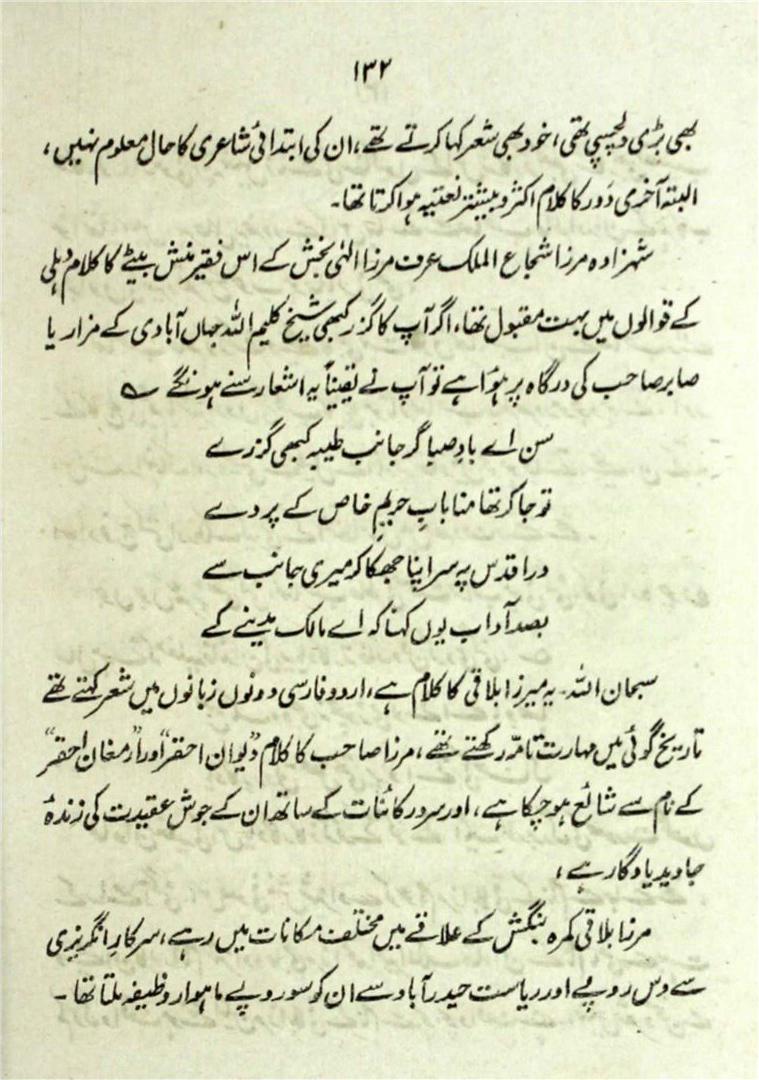 ۱۳۲
بھی بڑی دلچسپی تھی، خود بھی شعر کہا کرتے تھے، ان کی ابتدائی شاعری کا حال معلوم نہیں،
البتہ آخری دَور کا کلام اکثر و بیشتر نعتیہ ہوا کرتا تھا۔
شہزادہ مرزا شجاع الملک عرف مرزا الٰہی بخش کے اس فقیر منش بیٹے کا کلام دہلی
کے قوالوں میں بہت مقبول تھا، اگر آپ کا گزر کبھی شیخ کلیم اللہ جہاں آبادی کے مزار یا
صابر صاحب کی درگاہ پر ہوُا ہے تو آپ نے یقیناً یہ اشعار سنے ہونگے ؎
سن اے بادِ صبا گر جانب طیبہ کبھی گزرے
تو جا کر تھامنا بابِ حریمِ خاص کے پردے
در اقدس پہ سر اپنا جھکا کر میری جانب سے
بصد آداب یوں کہنا کہ اے مالک مدینے کے
سبحان اللہ۔ یہ میرزا بلاقی کا کلام ہے، اردو فارسی دونوں زبانوں میں شعر کہتے تھے
تاریخ گوئی میں مہارت تامّہ رکھتے تھے، مرزا صاحب کا کلام ”دیوان احقر“ اور ”ارمغان احقر“
کے نام سے شائع ہو چکا ہے، اور سرور کائنات کے ساتھ ان کے جوش عقیدت کی زندۂ
جاوید یادگار ہے،
مرزا بلاقی کمرہ بنگش کے علاقے میں مختلف مکانات میں رہے، سرکار انگریزی
سے دس روپے اور ریاست حیدرآباد سے ان کو سو روپے ماہوار وظیفہ ملتا تھا۔